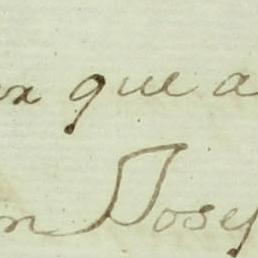 que a
n Josef